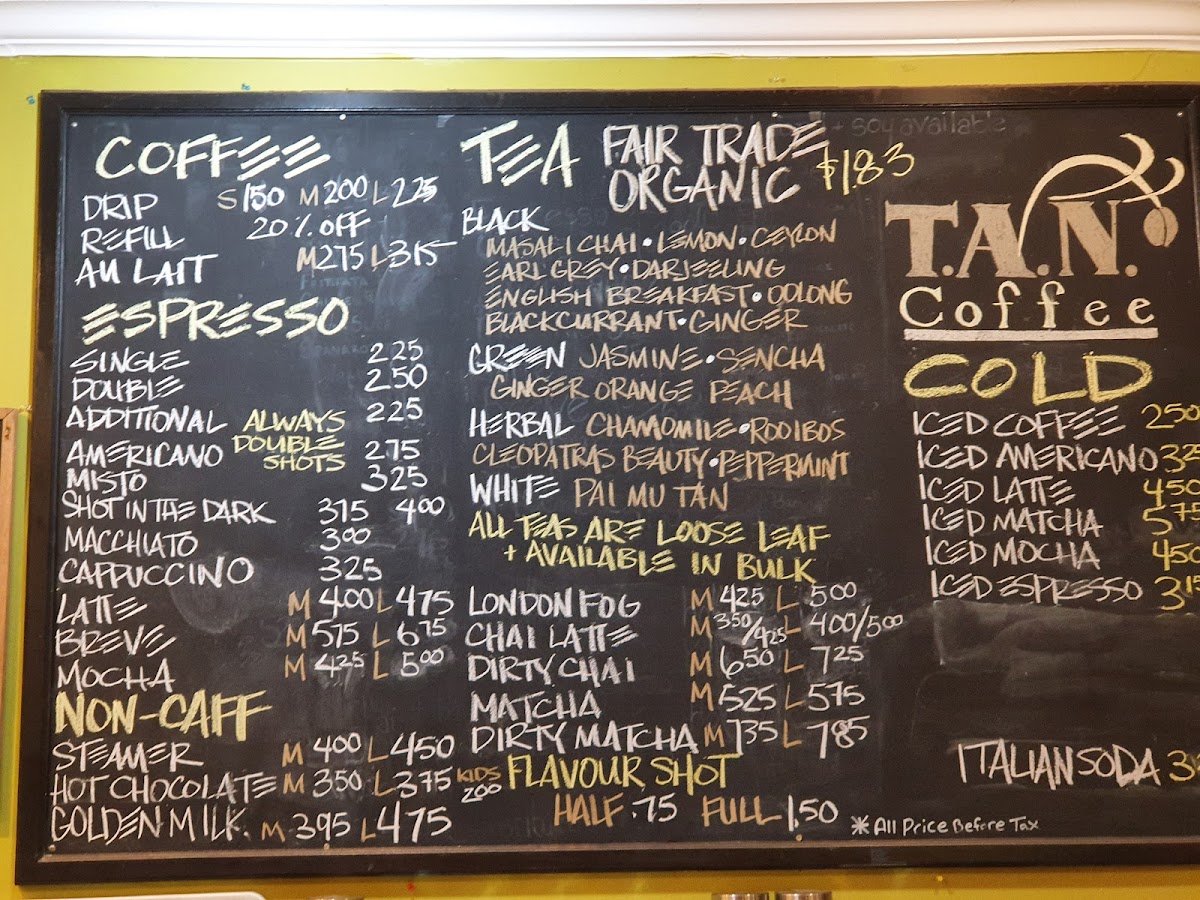 COFFEE
DRIP S 1.50 M 200 L 225
REFILL 20% OFF
AU LAIT M 275 L 315
ESPRESSO
SINGLE 225
DOUBLE 250
ADDITIONAL 225
ALWAYS
DOUBLE
SHOTS
AMERICANO 275
MISTO 325
SHOT IN THE DARK 315 400
MACCHIATO 300
CAPPUCCINO 325
LATTE M 400 L 475
BREVE M 575 L 675
MOCHA M 425 L 500
NON-CAFF
STEAMER M 400 L 450
HOT CHOCOLATE M 350 L 375 KIDS 200
GOLDEN MILK. M 395 L 475
TEA FAIR TRADE
ORGANIC $1.83
+ soy available
BLACK
MASALI CHAI • LEMON • CEYLON
EARL GREY • DARJEELING
ENGLISH BREAKFAST • OOLONG
BLACKCURRANT • GINGER
GREEN JASMINE • SENCHA
GINGER ORANGE PEACH
HERBAL CHAMOMILE • ROOIBOS
CLEOPATRAS BEAUTY • PEPPERMINT
WHITE PAI MU TAN
ALL TEAS ARE LOOSE LEAF
+ AVAILABLE IN BULK
LONDON FOG M 425 L 500
CHAI LATTE M 350/425 L 400/500
DIRTY CHAI M 650 L 725
MATCHA M 525 L 575
DIRTY MATCHA M 735 L 785
FLAVOUR SHOT
HALF .75 FULL 1.50
T.A.N.
Coffee
COLD
ICED COFFEE 250
ICED AMERICANO 325
ICED LATTE 450
ICED MATCHA 575
ICED MOCHA 450
ICED ESPRESSO 315
ITALIAN SODA
* All Price Before Tax